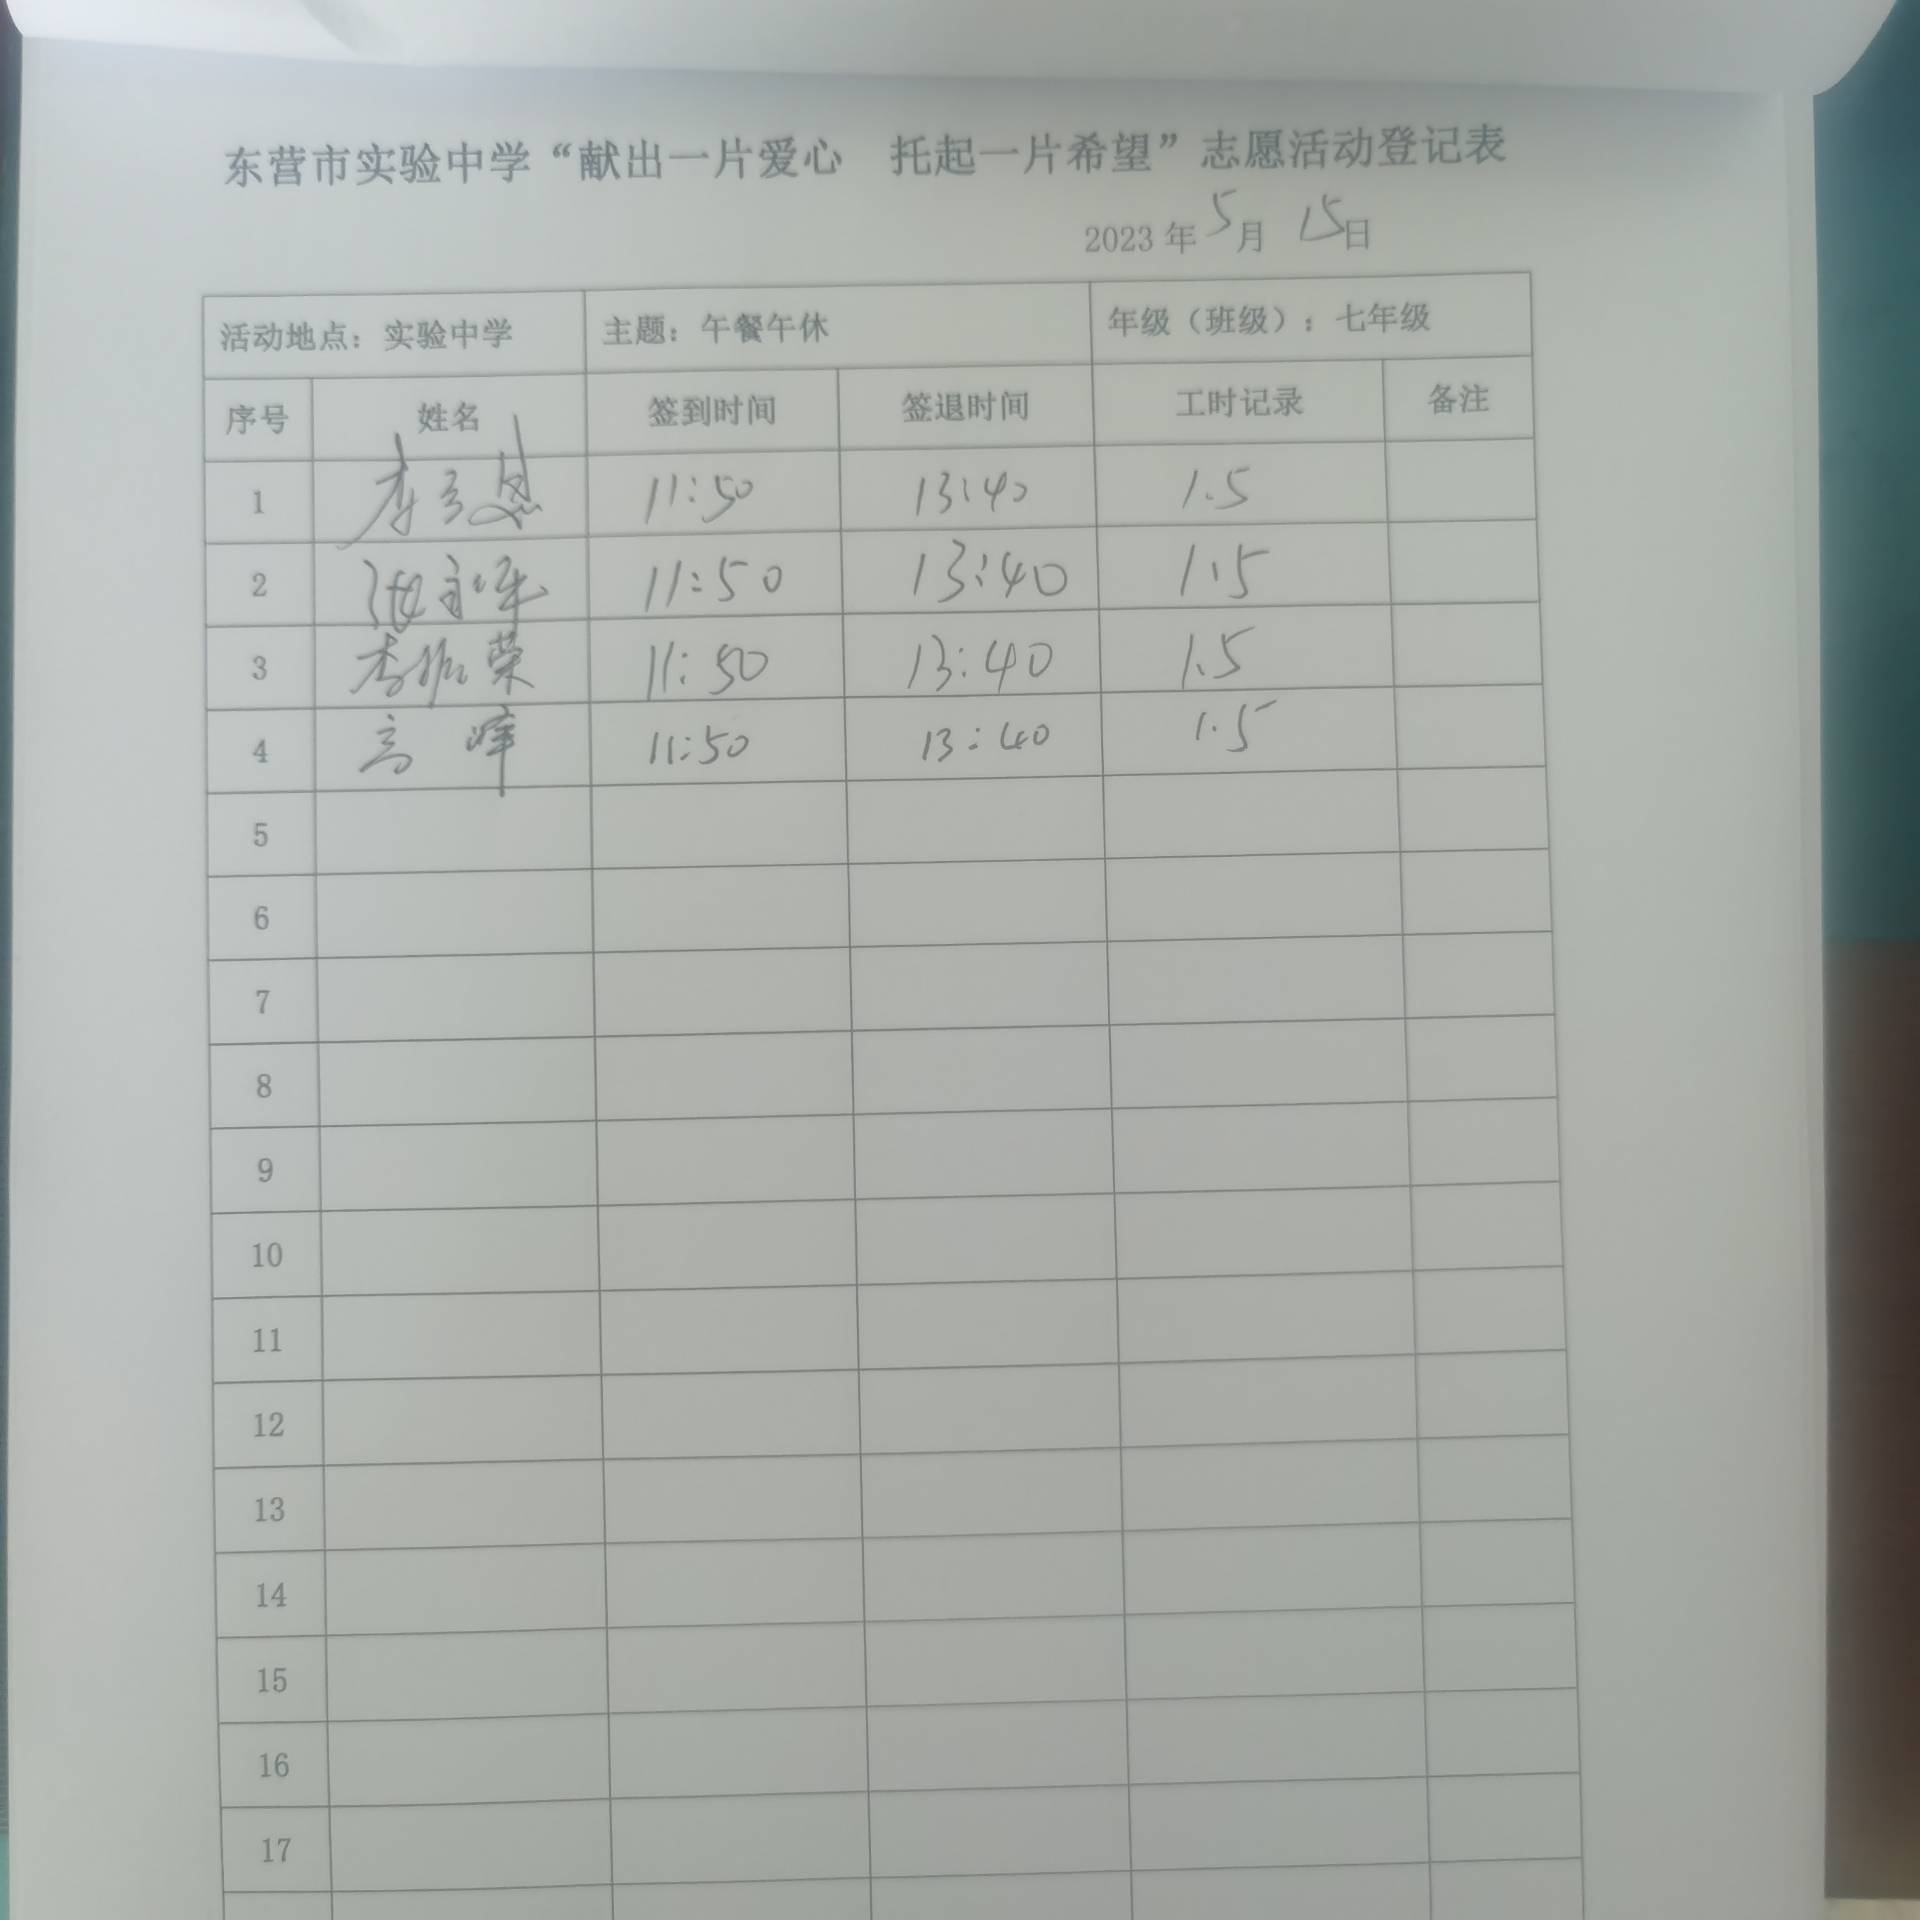 东营市实验中学“献出一片爱心 托起一片希望”志愿活动登记表
2023年5月15日
活动地点：实验中学 主题：午餐午休 年级（班级）：七年级
序号 姓名 签到时间 签退时间 工时记录 备注
1 李 11:50 13:40 1.5
2 11:50 13:40 1.5
3 李振荣 11:50 13:40 1.5
4 高峰 11:50 13:40 1.5
5
6
7
8
9
10
11
12
13
14
15
16
17